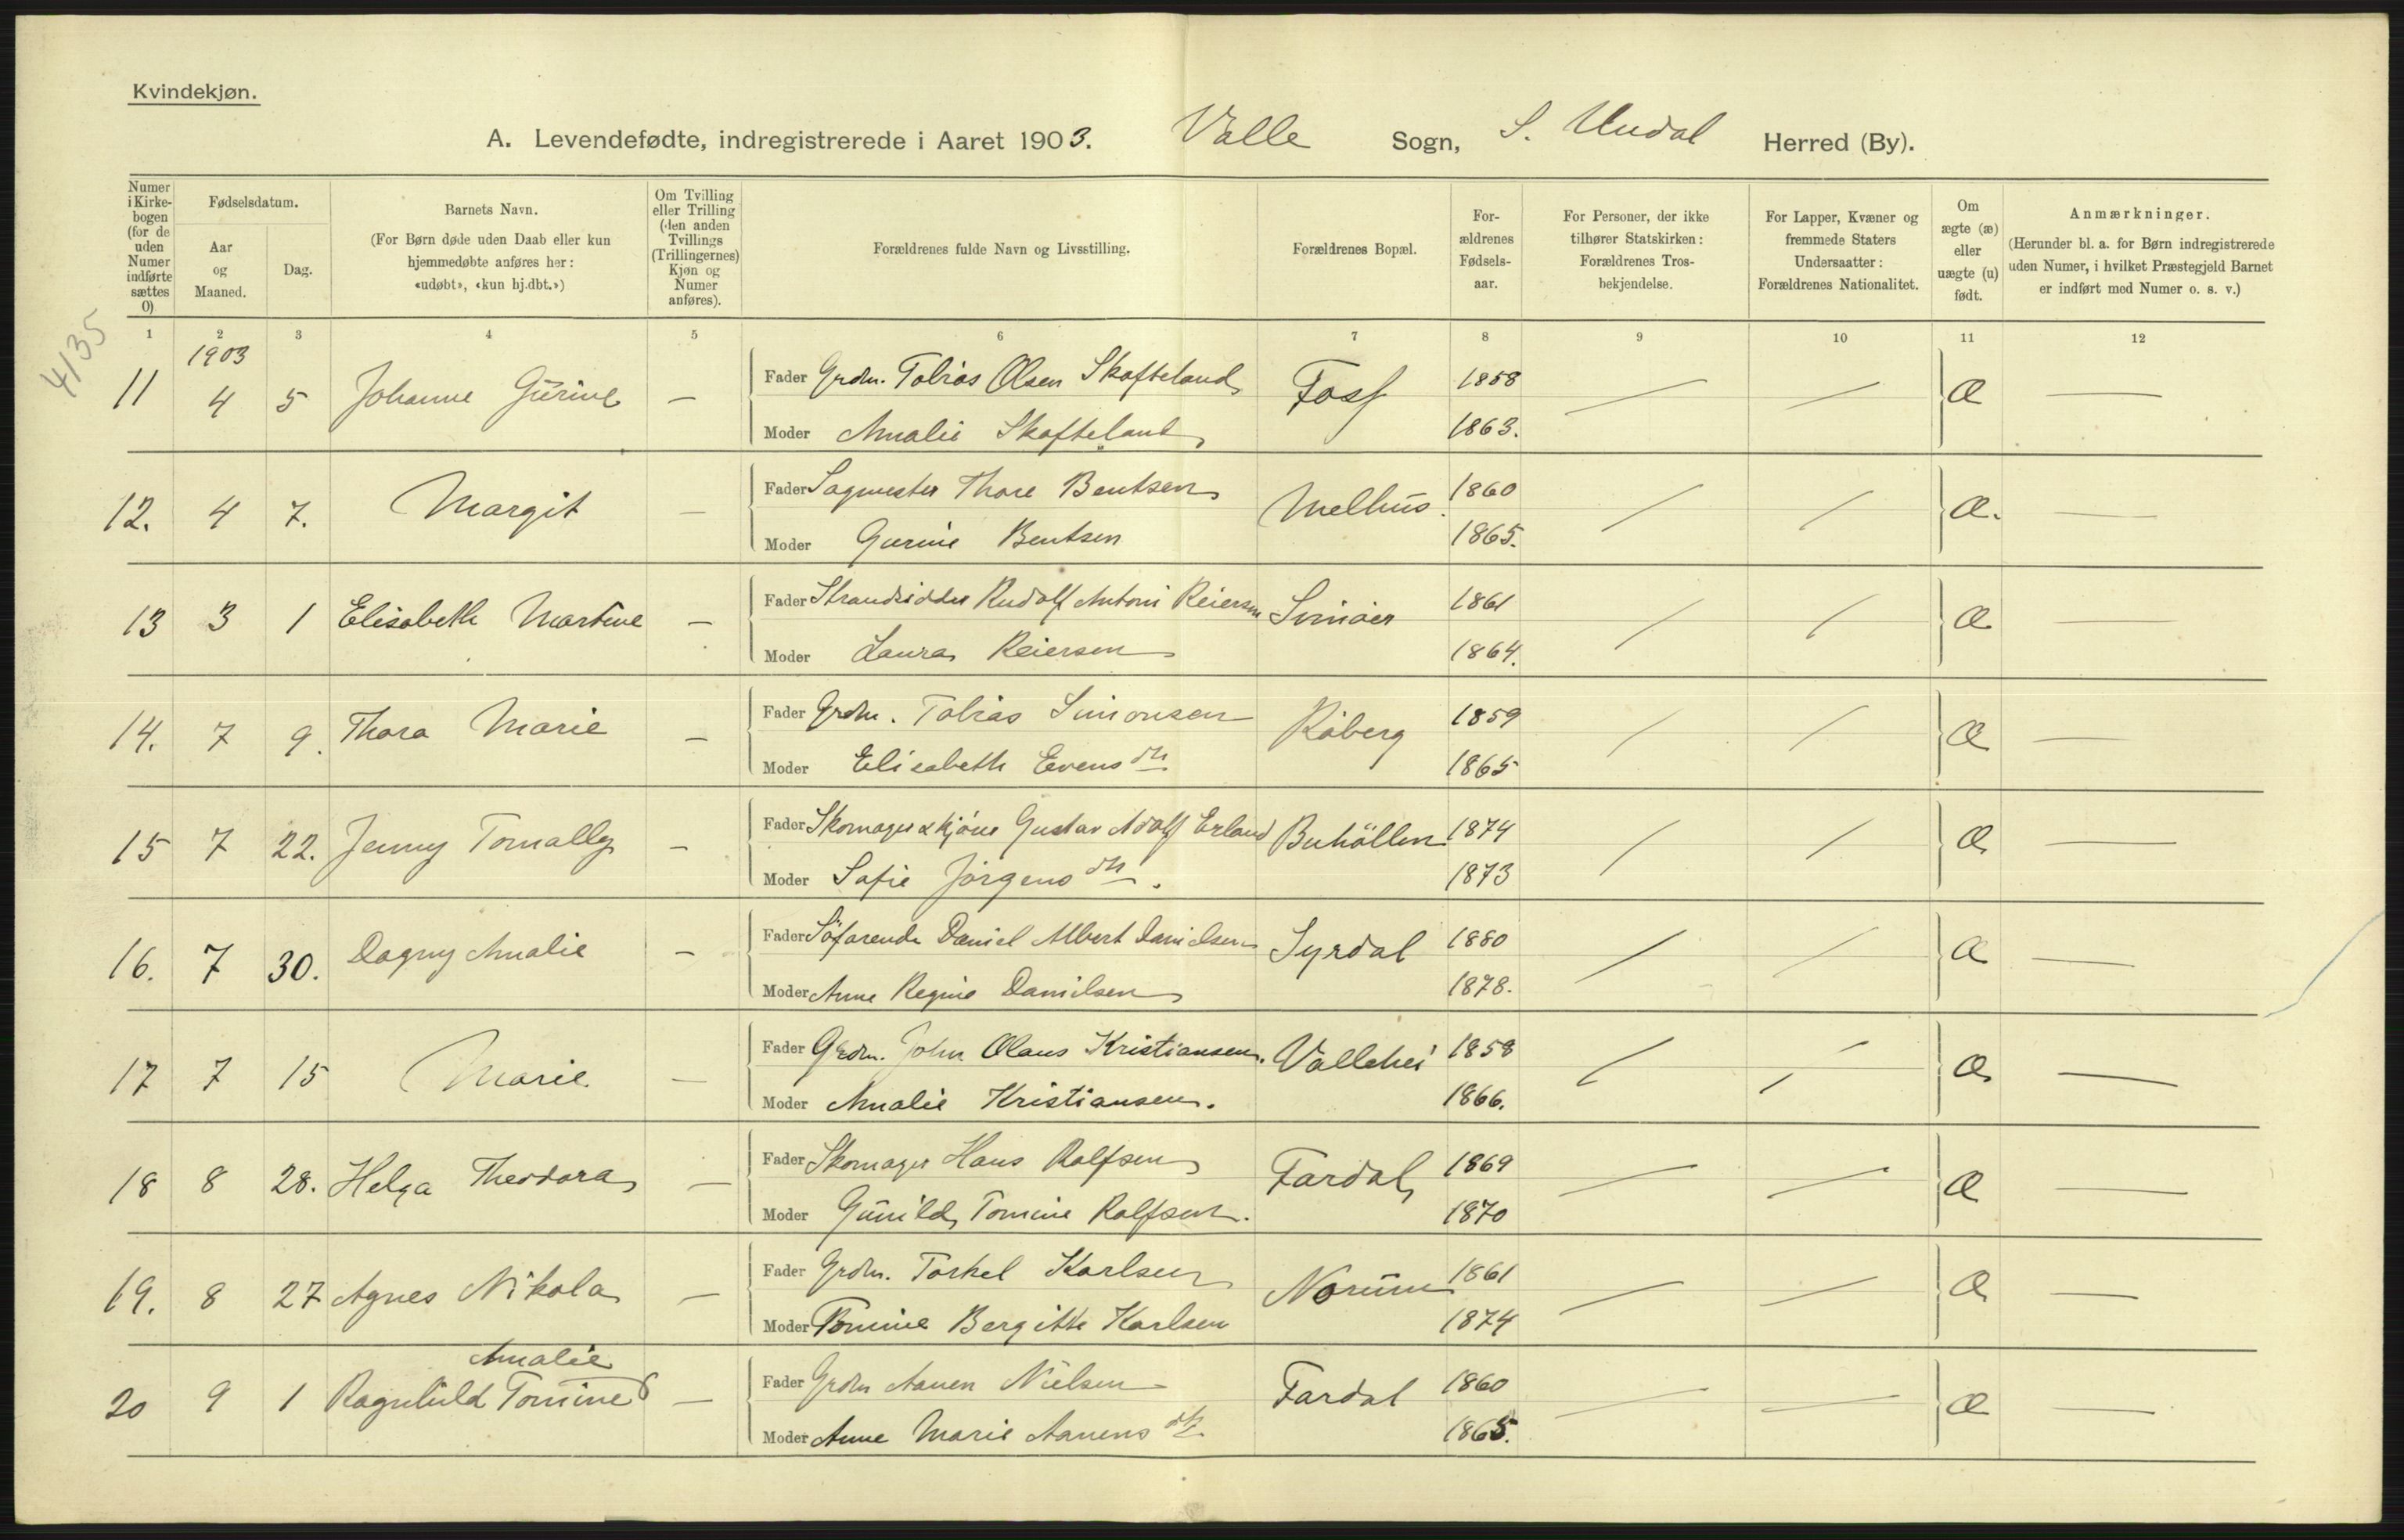 Kvindekjøn.
A. Levendefødte, indregistrerede i Aaret 1903. Valle Sogn, S. Undal Herred (By).
Numer i Kirke-bogen (for de uden Numer indførte sættes 0)
Fødselsdatum.
Aar og Maaned.
Dag.
Barnets Navn.
(For Børn døde uden Daab eller kun hjemmedøbte anføres her: «udøbt», «kun hj.dbt.»)
Om Tvilling eller Trilling (den anden Tvillings (Trillingernes) Kjøn og Numer anføres).
Forældrenes fulde Navn og Livsstilling.
Forældrenes Bopæl.
For-ældrenes Fødsels-aar.
For Personer, der ikke tilhører Statskirken: Forældrenes Tros-bekjendelse.
For Lapper, Kvæner og fremmede Staters Undersaatter: Forældrenes Nationalitet.
Om ægte (æ) eller uægte (u) født.
Anmærkninger.
(Herunder bl. a. for Børn indregistrerede uden Numer, i hvilket Præstegjeld Barnet er indført med Numer o. s. v.)
1 2 3 4 5 6 7 8 9 10 11 12
4135
1903
11 4 5 Johanne Gurine — Fader Grdm. Tobias Olsen Skofteland Foss 1858 — — Æ —
Moder Amalie Skofteland 1863.
12. 4 7. Margit — Fader Sagmester Thore Bentsen Melhus. 1860 Æ. —
Moder Gurine Bentsen 1865.
13 3 1 Elisabeth Martine — Fader Strandsidder Rudolf Antoni Reiersen Svinøer 1861 Æ —
Moder Laura Reiersen 1864.
14. 7 9. Thora Marie — Fader Grdm. Tobias Simonsen Råberg 1859 Æ —
Moder Elisabeth Evensdtr 1865
15 7 22. Jenny Tomally — Fader Skomager Gustav Adolf Erland Buhöllen 1874 Æ —
Moder Sofie Jörgensdtr. 1873
16. 7 30. Dagny Amalie — Fader Söfarende Daniel Albert Danielsen Syrdal 1880 Æ —
Moder Anne Regine Danielsen 1878.
17 7 15 Marie — Fader Grdm. John Olaus Kristiansen. Vallehei 1858 Æ —
Moder Amalie Kristiansen. 1866.
18 8 28. Helga Theodora — Fader Skomager Hans Rolfsen Fardal 1869 — — Æ —
Moder Gunild Tomine Rolfsen. 1870
19. 8 27 Agnes Nikola — Fader Grdm. Torkel Karlsen Norum 1861 — — Æ —
Moder Tomine Bergitte Karlsen 1874
Amalie
20 9 1 Ragnhild Tomine — Fader Grdm Aanen Nielsen Fardal 1860 — — Æ —
Moder Anne Marie Aanensdtr. 1865.